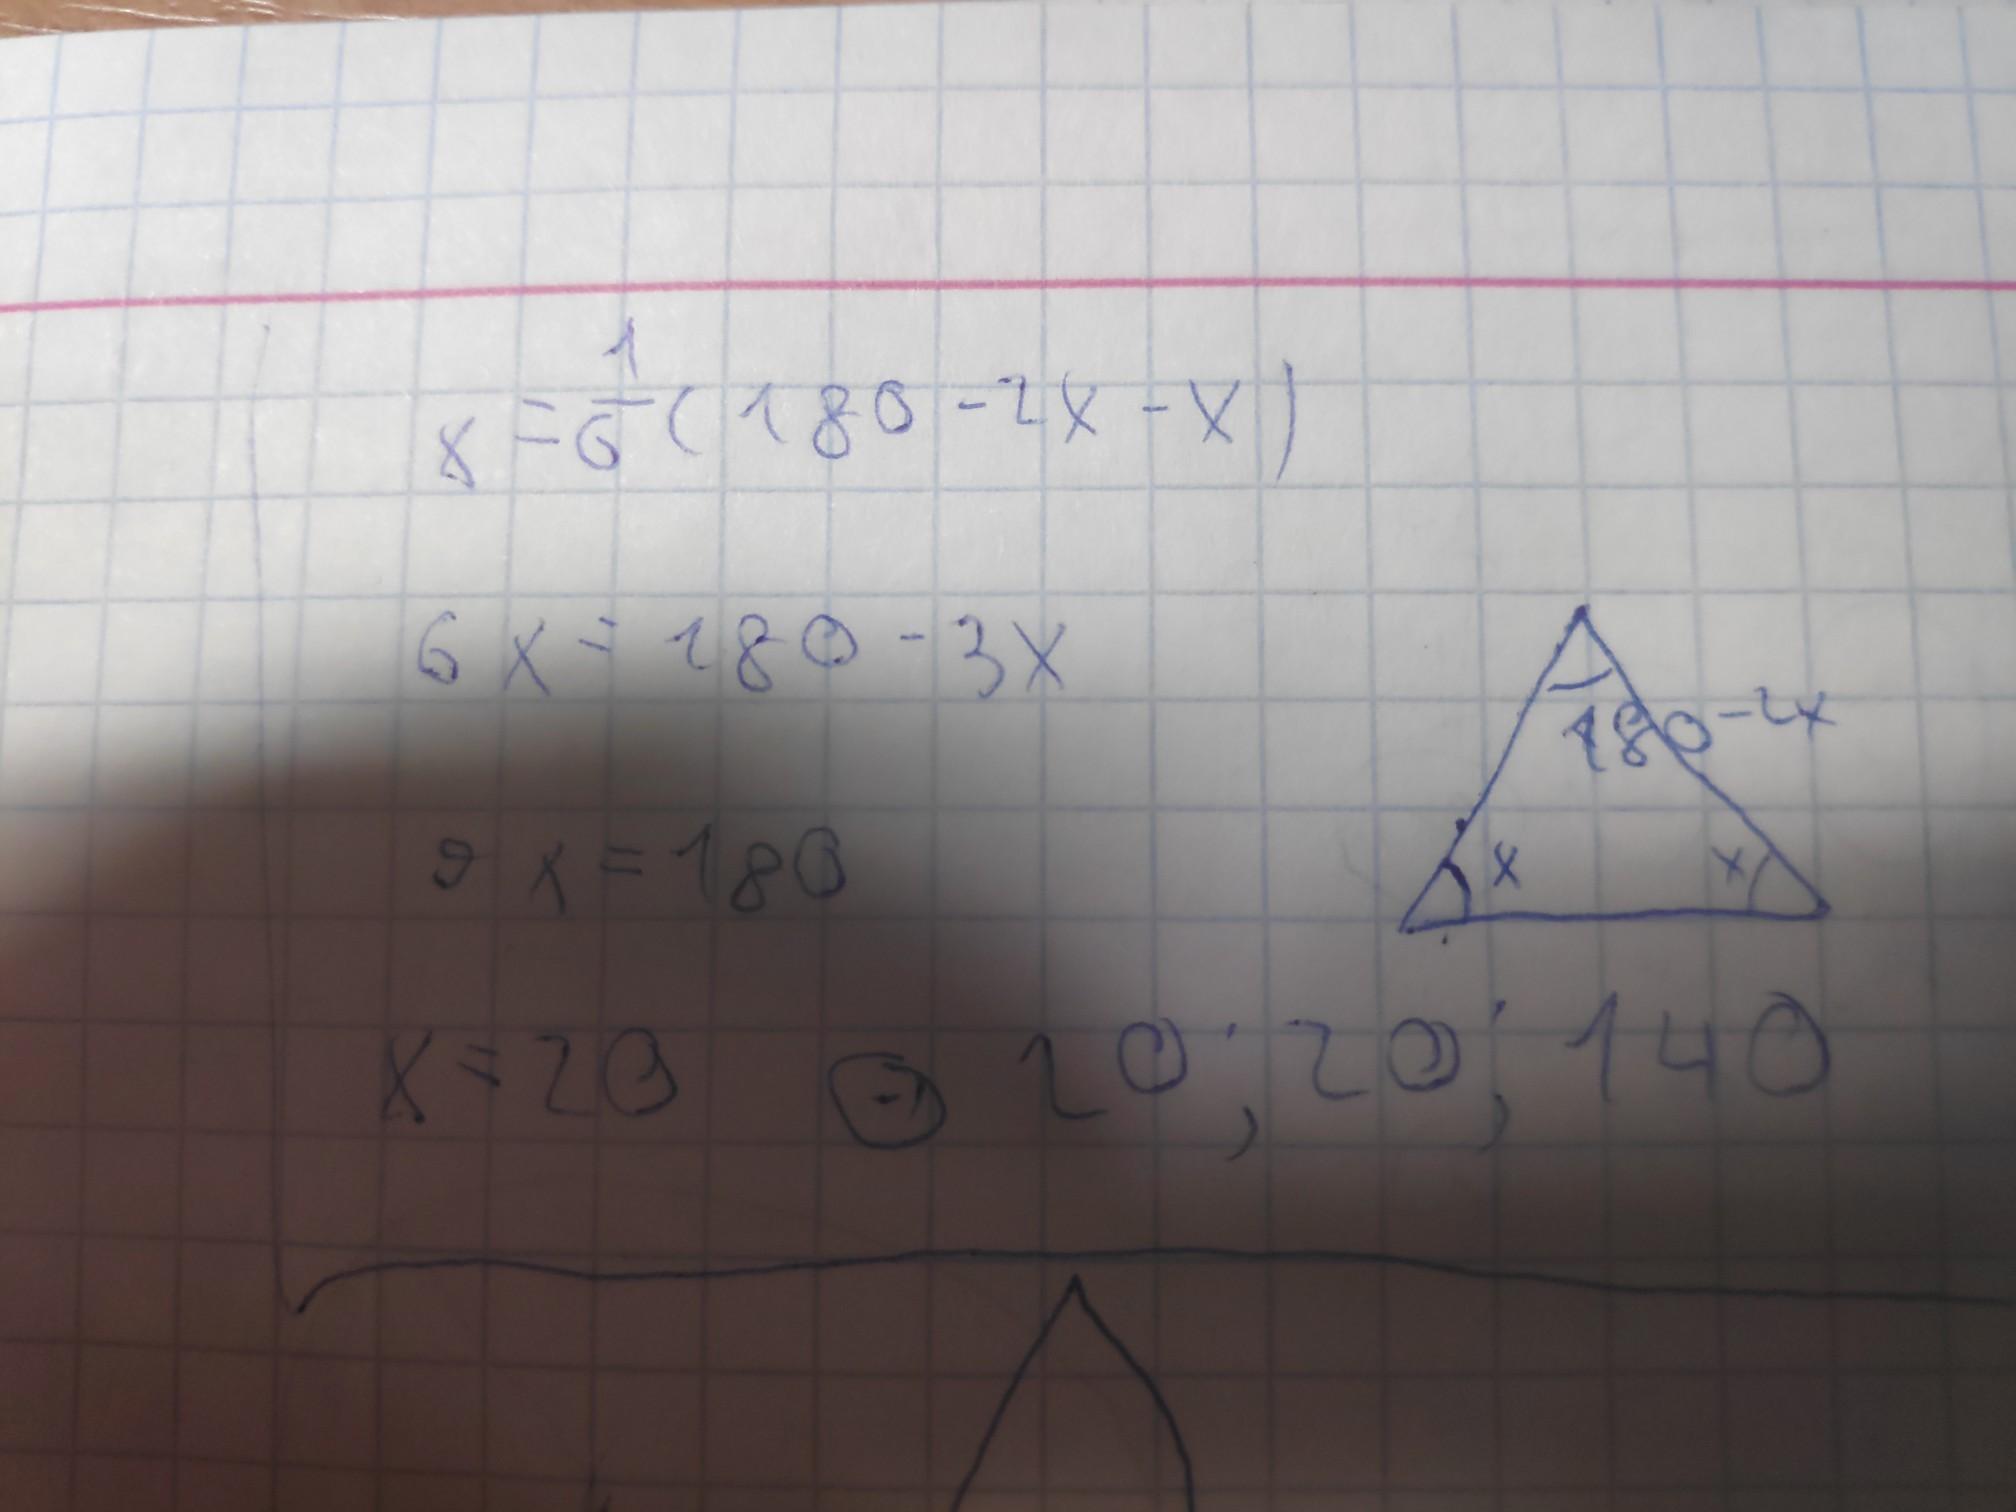 x = 1/6 (180 - 2x - x)
6x = 180 - 3x
180 - 2x
9x = 180
x x
x = 20 20; 20; 140